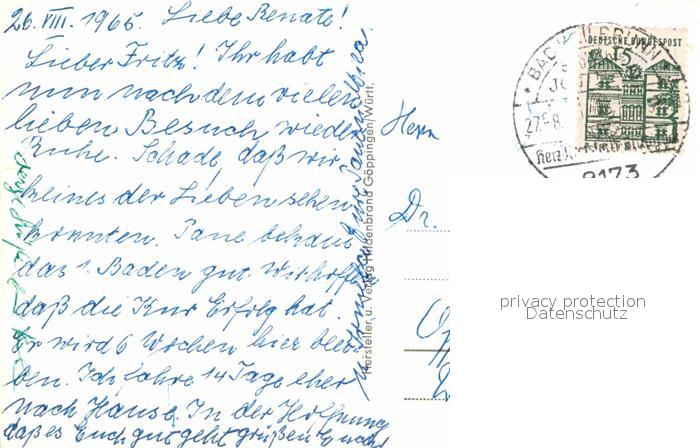 26. VIII. 1965. Liebe Renate!
Lieber Fritz! Ihr habt
nun nach dem vielen
lieben Besuch wieder
Ruhe. Schade, daß wir
keines der Lieben sehen
konnten.
das 1. Baden gut. Wir hoffen
daß die Kur Erfolg hat.
Er wird 6 Wochen hier blei-
ben. Ich fahre 14 Tage eher
nach Hause. In der Hoffnung
daß es Euch gut geht grüßen Euch
Hersteller u. Verlag Hildenbrand Göppingen/Württ.
Herrn
Dr.
DEUTSCHE BUNDESPOST
15
BAD
8173
privacy protection
Datenschutz